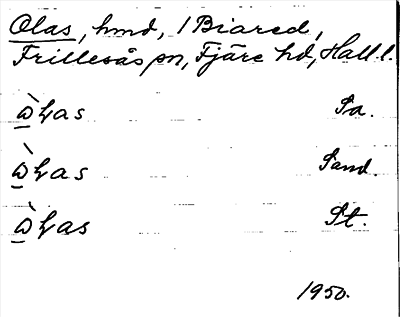 Olas, hmd, 1 Biared,
Frillesås sn, Fjäre hd, Hall l.
ὼɫas Pa.
ὼɫas Sand.
ὼɫas St.
1950.